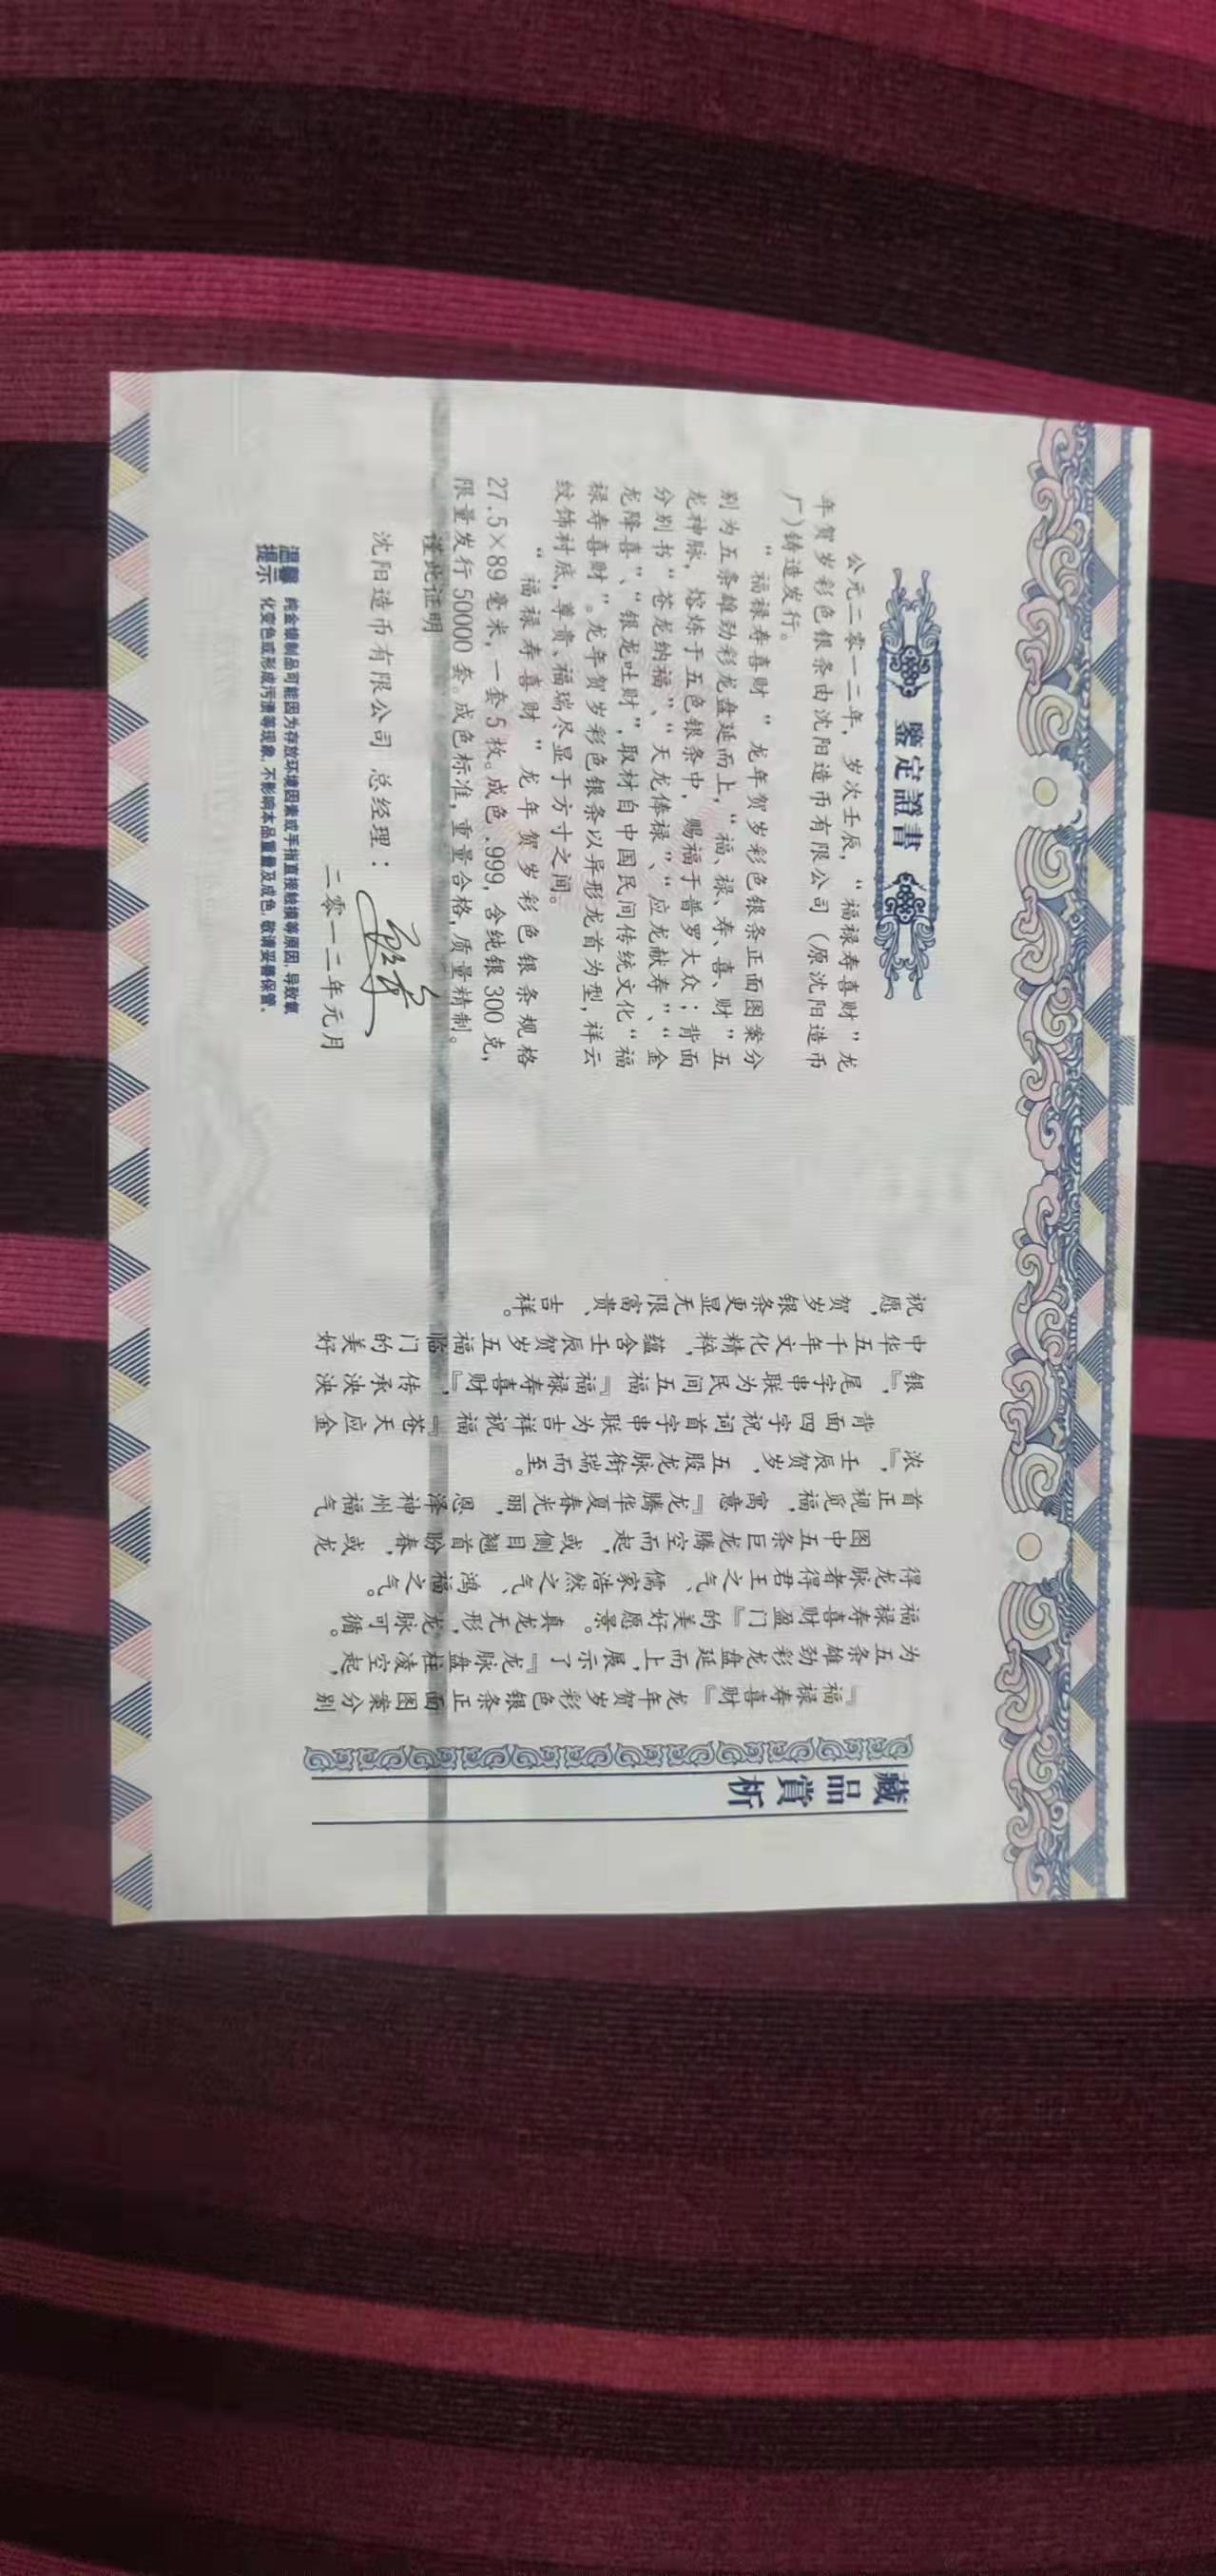 鑒定證書
公元二零一二年，岁次壬辰，“福禄寿喜财”龙
年贺岁彩色银条由沈阳造币有限公司（原沈阳造币
厂)铸造发行。
“福禄寿喜财”龙年贺岁彩色银条正面图案分
别为五条雄劲彩龙盘延而上，“福、禄、寿、喜、财”五
龙神脉，熔炼于五色银条中，赐福于普罗大众；背面
分别书“苍龙纳福”、“天龙俸禄”、“应龙献寿”、“金
龙降喜”、“银龙吐财”，取材自中国民间传统文化“福
禄寿喜财”。龙年贺岁彩色银条以异形龙首为型，祥云
纹饰衬底，尊贵、福瑞尽显于方寸之间。
“福禄寿喜财”龙年贺岁彩色银条规格
27.5×89毫米，一套5枚。成色.999，含纯银300克，
限量发行50000套。成色标准，重量合格，质量精制。
谨此证明
沈阳造币有限公司 总经理：
二零一二年元月
温馨 纯金银制品可能因为存放环境因素或手指直接触摸等原因，导致氧
提示 化变色或形成污渍等现象，不影响本品重量及成色，敬请妥善保管。
藏品賞析
『福禄寿喜财』龙年贺岁彩色银条正面图案分别
为五条雄劲彩龙盘延而上，展示了『龙脉盘柱凌空起，
福禄寿喜财盈门』的美好愿景。真龙无形，龙脉可循。
得龙脉者得君王之气、儒家浩然之气、鸿福之气。
图中五条巨龙腾空而起，或侧目翘首盼春，或龙
首正视觅福，寓意『龙腾华夏春光丽，恩泽神州福气
浓』，壬辰贺岁，五股龙脉衔瑞而至。
背面四字祝词首字串联为吉祥祝福『苍天应金
银』，尾字串联为民间五福『福禄寿喜财』，传承泱泱
中华五千年文化精粹，蕴含壬辰贺岁五福临门的美好
祝愿，贺岁银条更显无限富贵、吉祥。